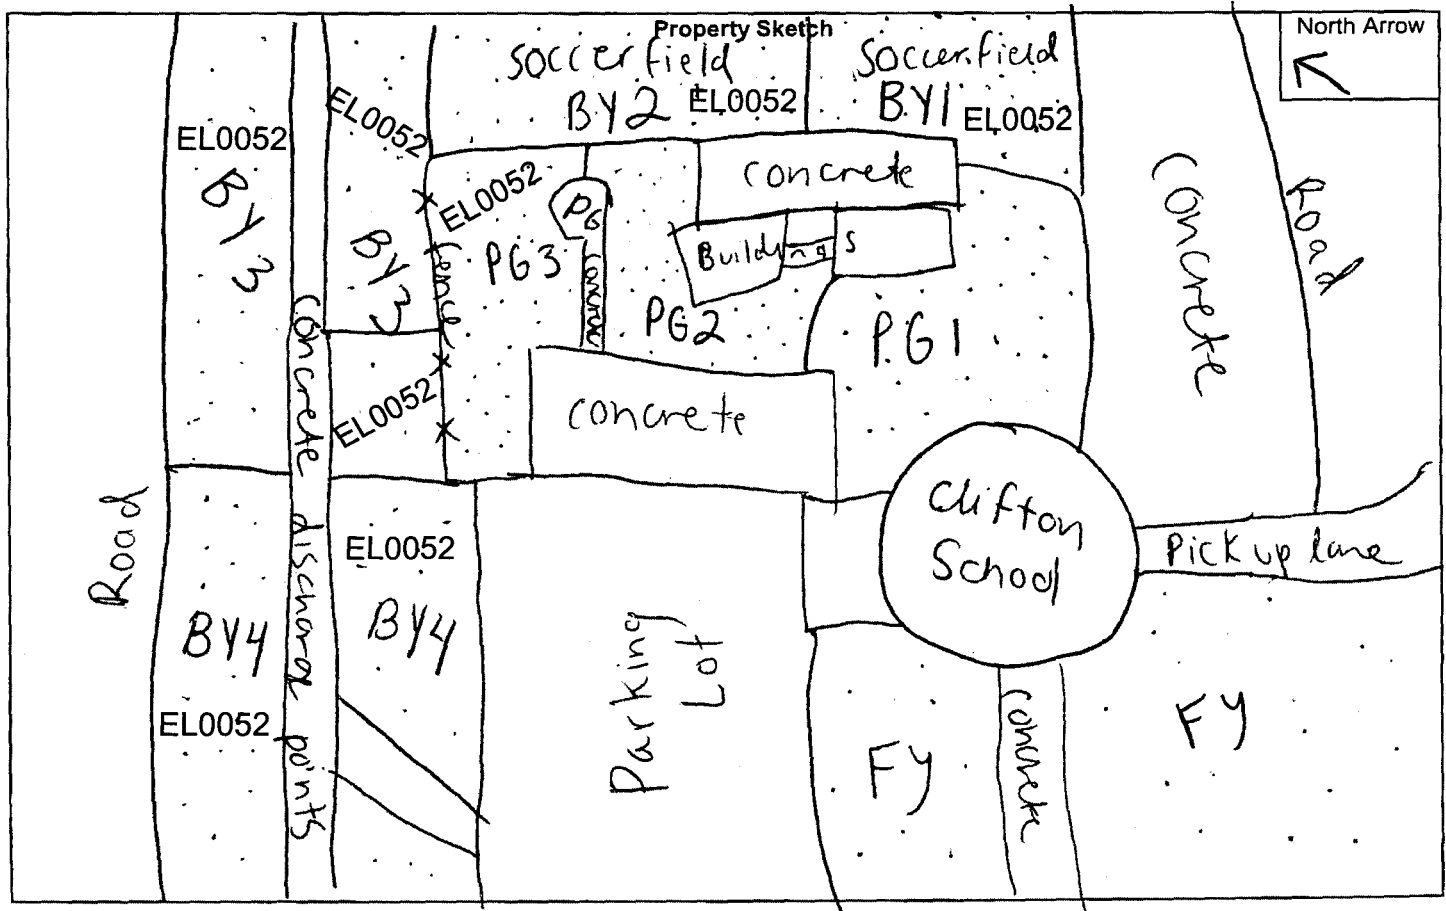 Property Sketch
North Arrow
soccer field
BY2
EL0052
Soccer field
BY1
EL0052
EL0052
BY3
EL0052
BY3
EL0052
EL0052
fence
PG3
PG
concrete
concrete
Buildings
PG2
PG1
concrete
concrete
Road
Road
concrete discharge points
EL0052
BY4
BY4
EL0052
Parking
Lot
Clifton
School
Pick up lane
FY
concrete
FY